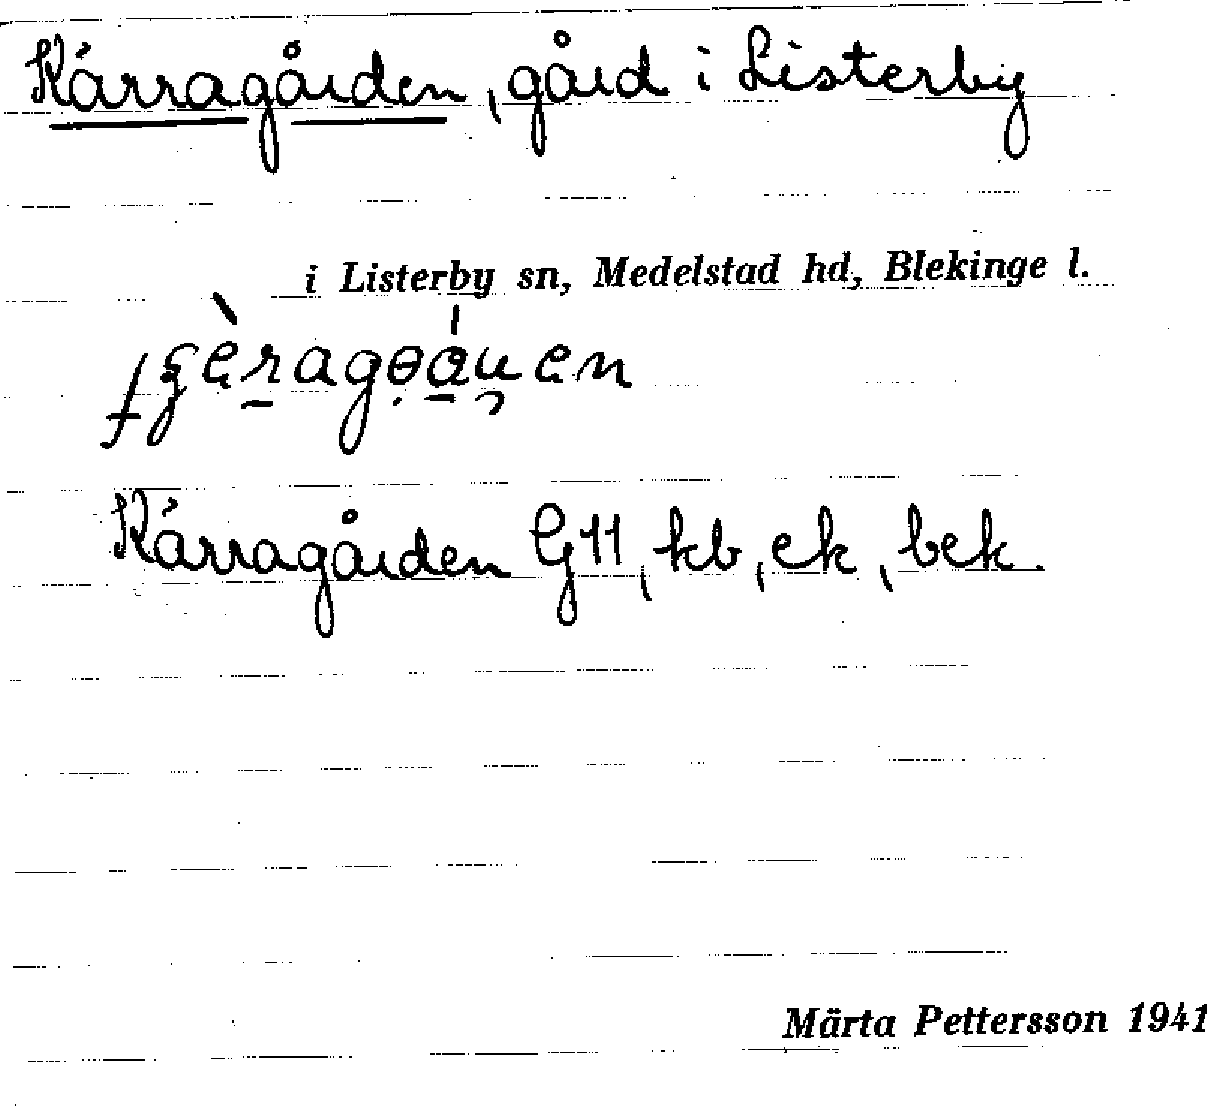 Kärragården, gård i Listerby
i Listerby sn, Medelstad hd, Blekinge l.
Kärragården G11, kb, ek, bek.
Märta Pettersson 1941